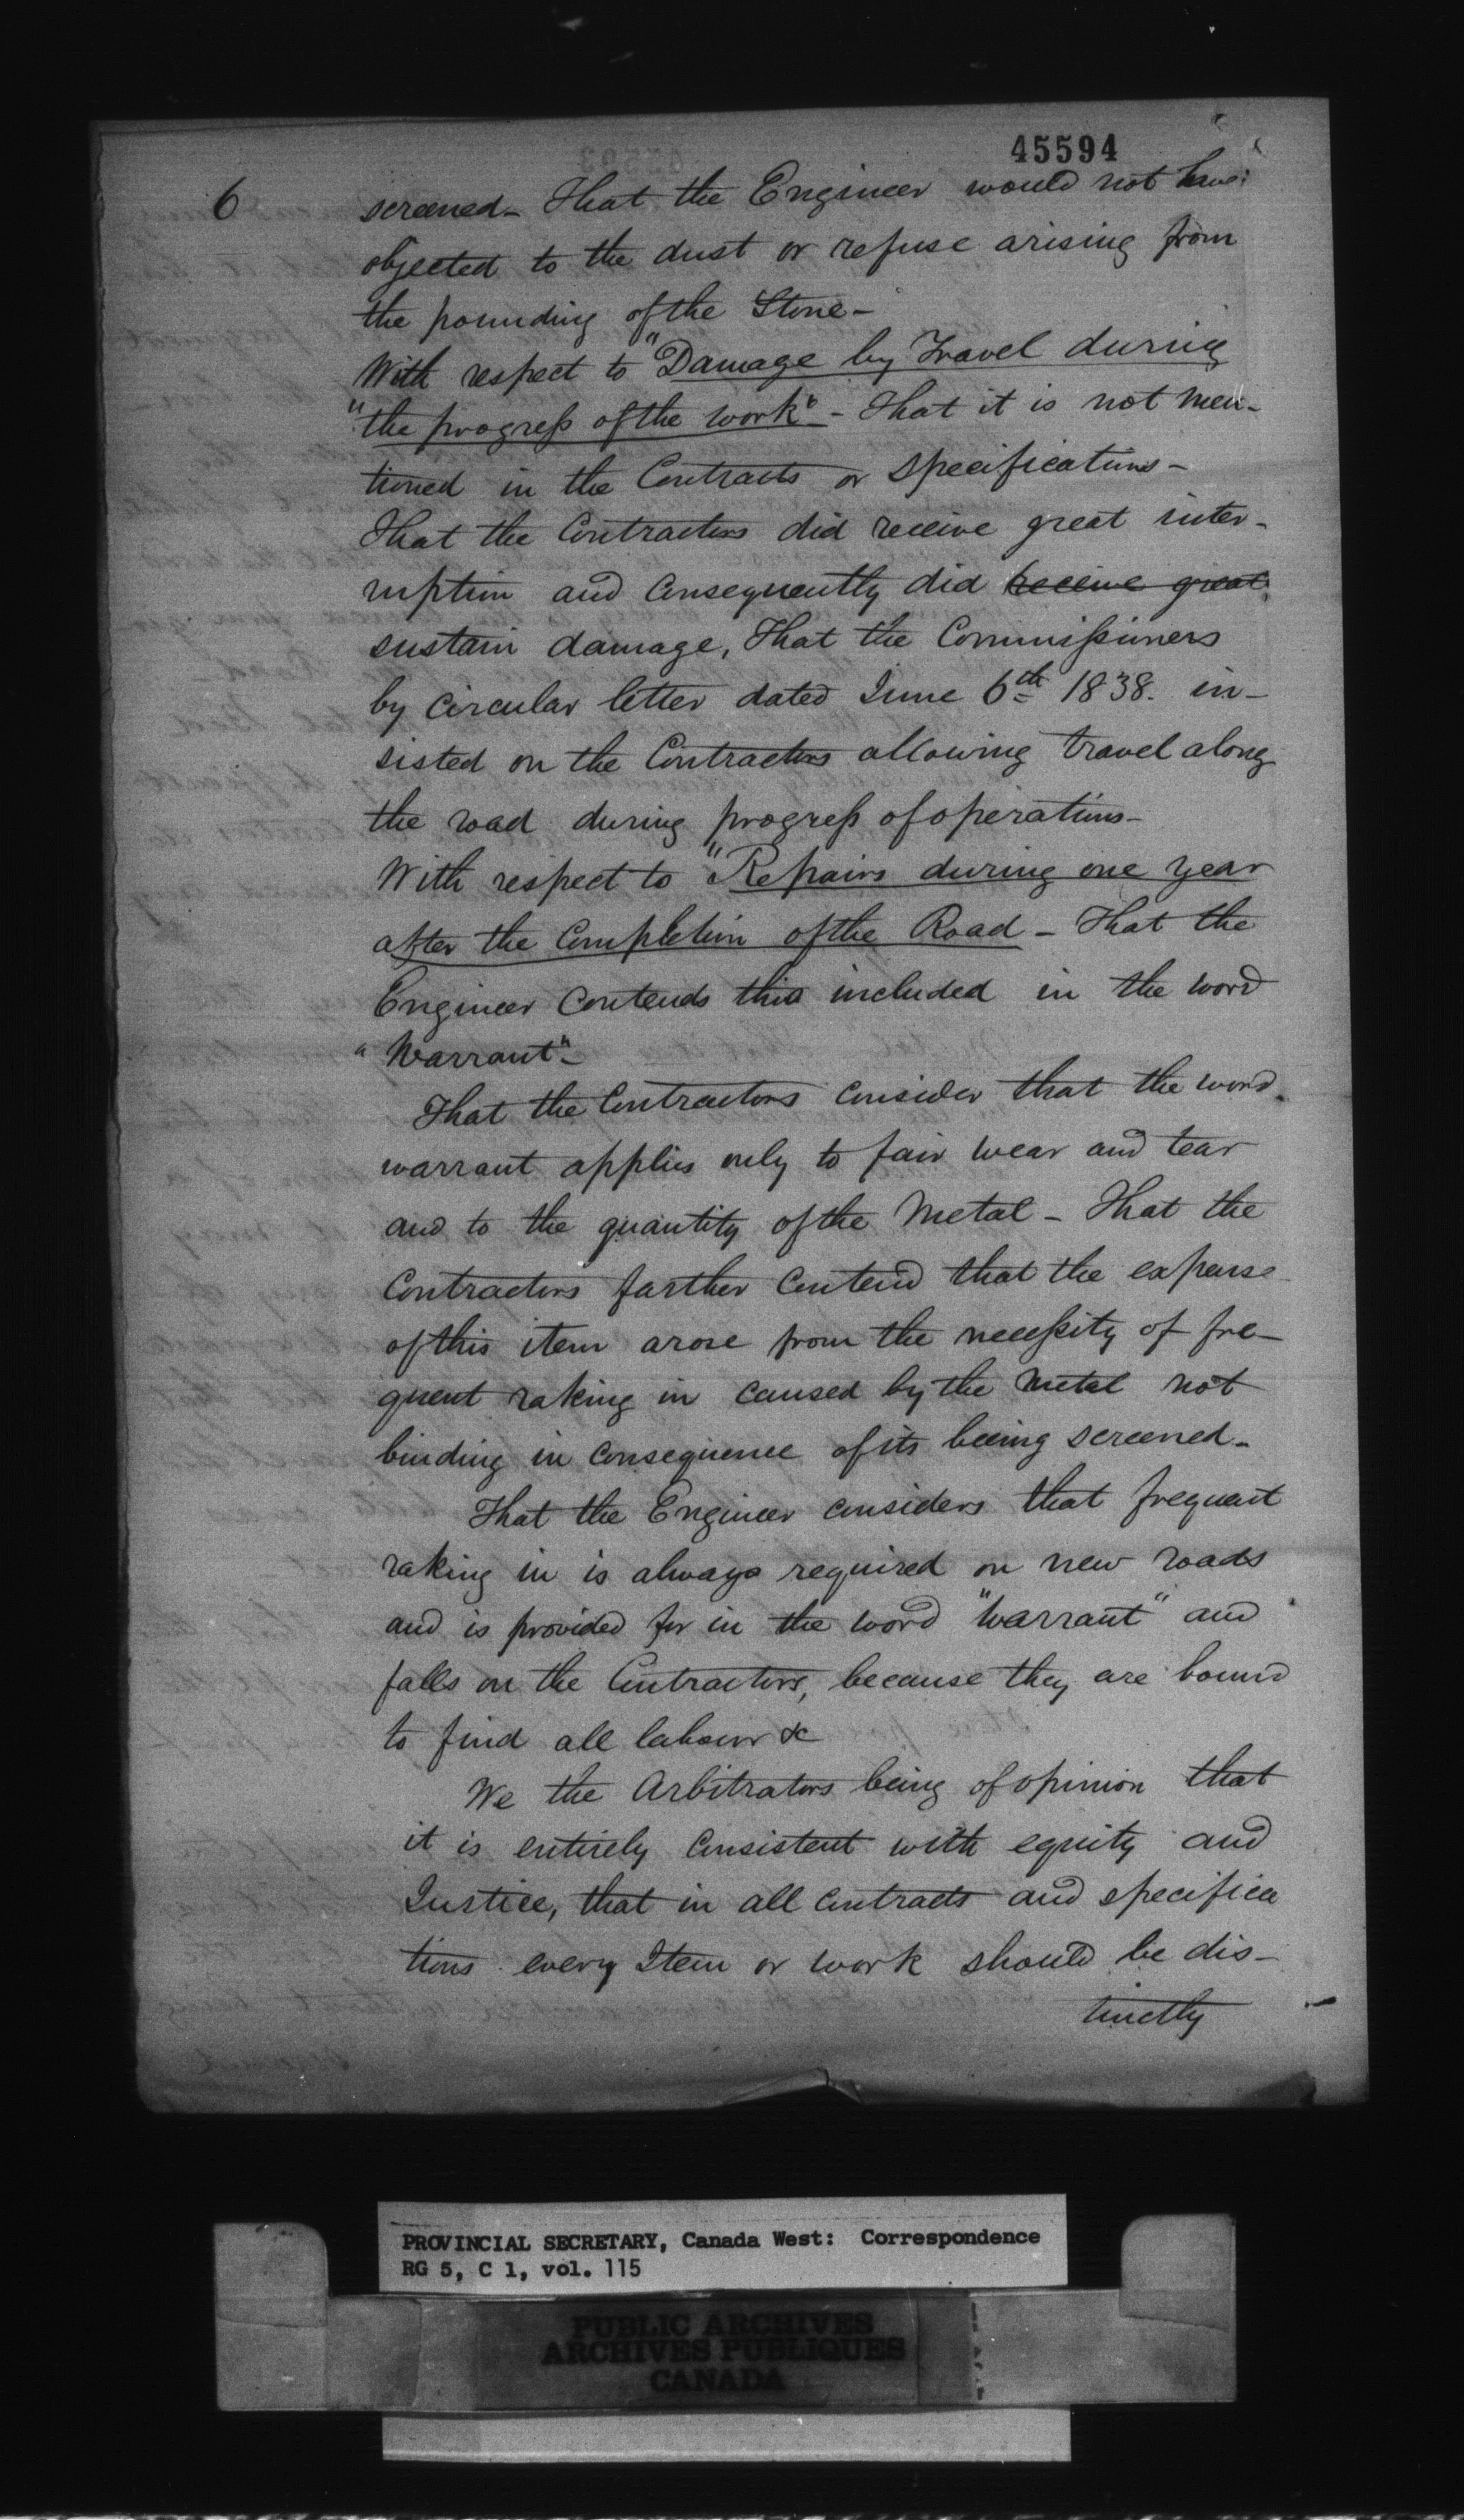 45594
6
screened - That the Engineer would not have
objected to the dust or refuse arising from
the pounding of the Stone -
With respect to "Damage by Travel during
"the progress of the work" - That it is not men-
tioned in the Contracts or specifications -
That the Contractors did receive great inter-
ruption and Consequently did receive great
sustain damage, That the Commissioners
by circular letter dated June 6th 1838. in-
sisted on the Contractors allowing travel along
the road during progress of operations -
With respect to "Repairs during one year
after the Completion of the Road - That the
Engineer Contends this included in the word
"Warrant" -
That the Contractors consider that the word
warrant applies only to fair wear and tear
and to the quantity of the Metal - That the
Contractors farther Contend that the expense
of this item arose from the necessity of fre-
quent raking in caused by the Metal not
binding in consequence of its being screened -
That the Engineer considers that frequent
raking in is always required on new roads
and is provided for in the word "Warrant" and
falls on the Contractors, because they are bound
to find all labour &c
We the Arbitrators being of opinion that
it is entirely Consistent with equity and
Justice, that in all Contracts and specifica
tions every Item or work should be dis-
tinctly
PROVINCIAL SECRETARY, Canada West: Correspondence
RG 5, C 1, vol. 115
PUBLIC ARCHIVES
ARCHIVES PUBLIQUES
CANADA